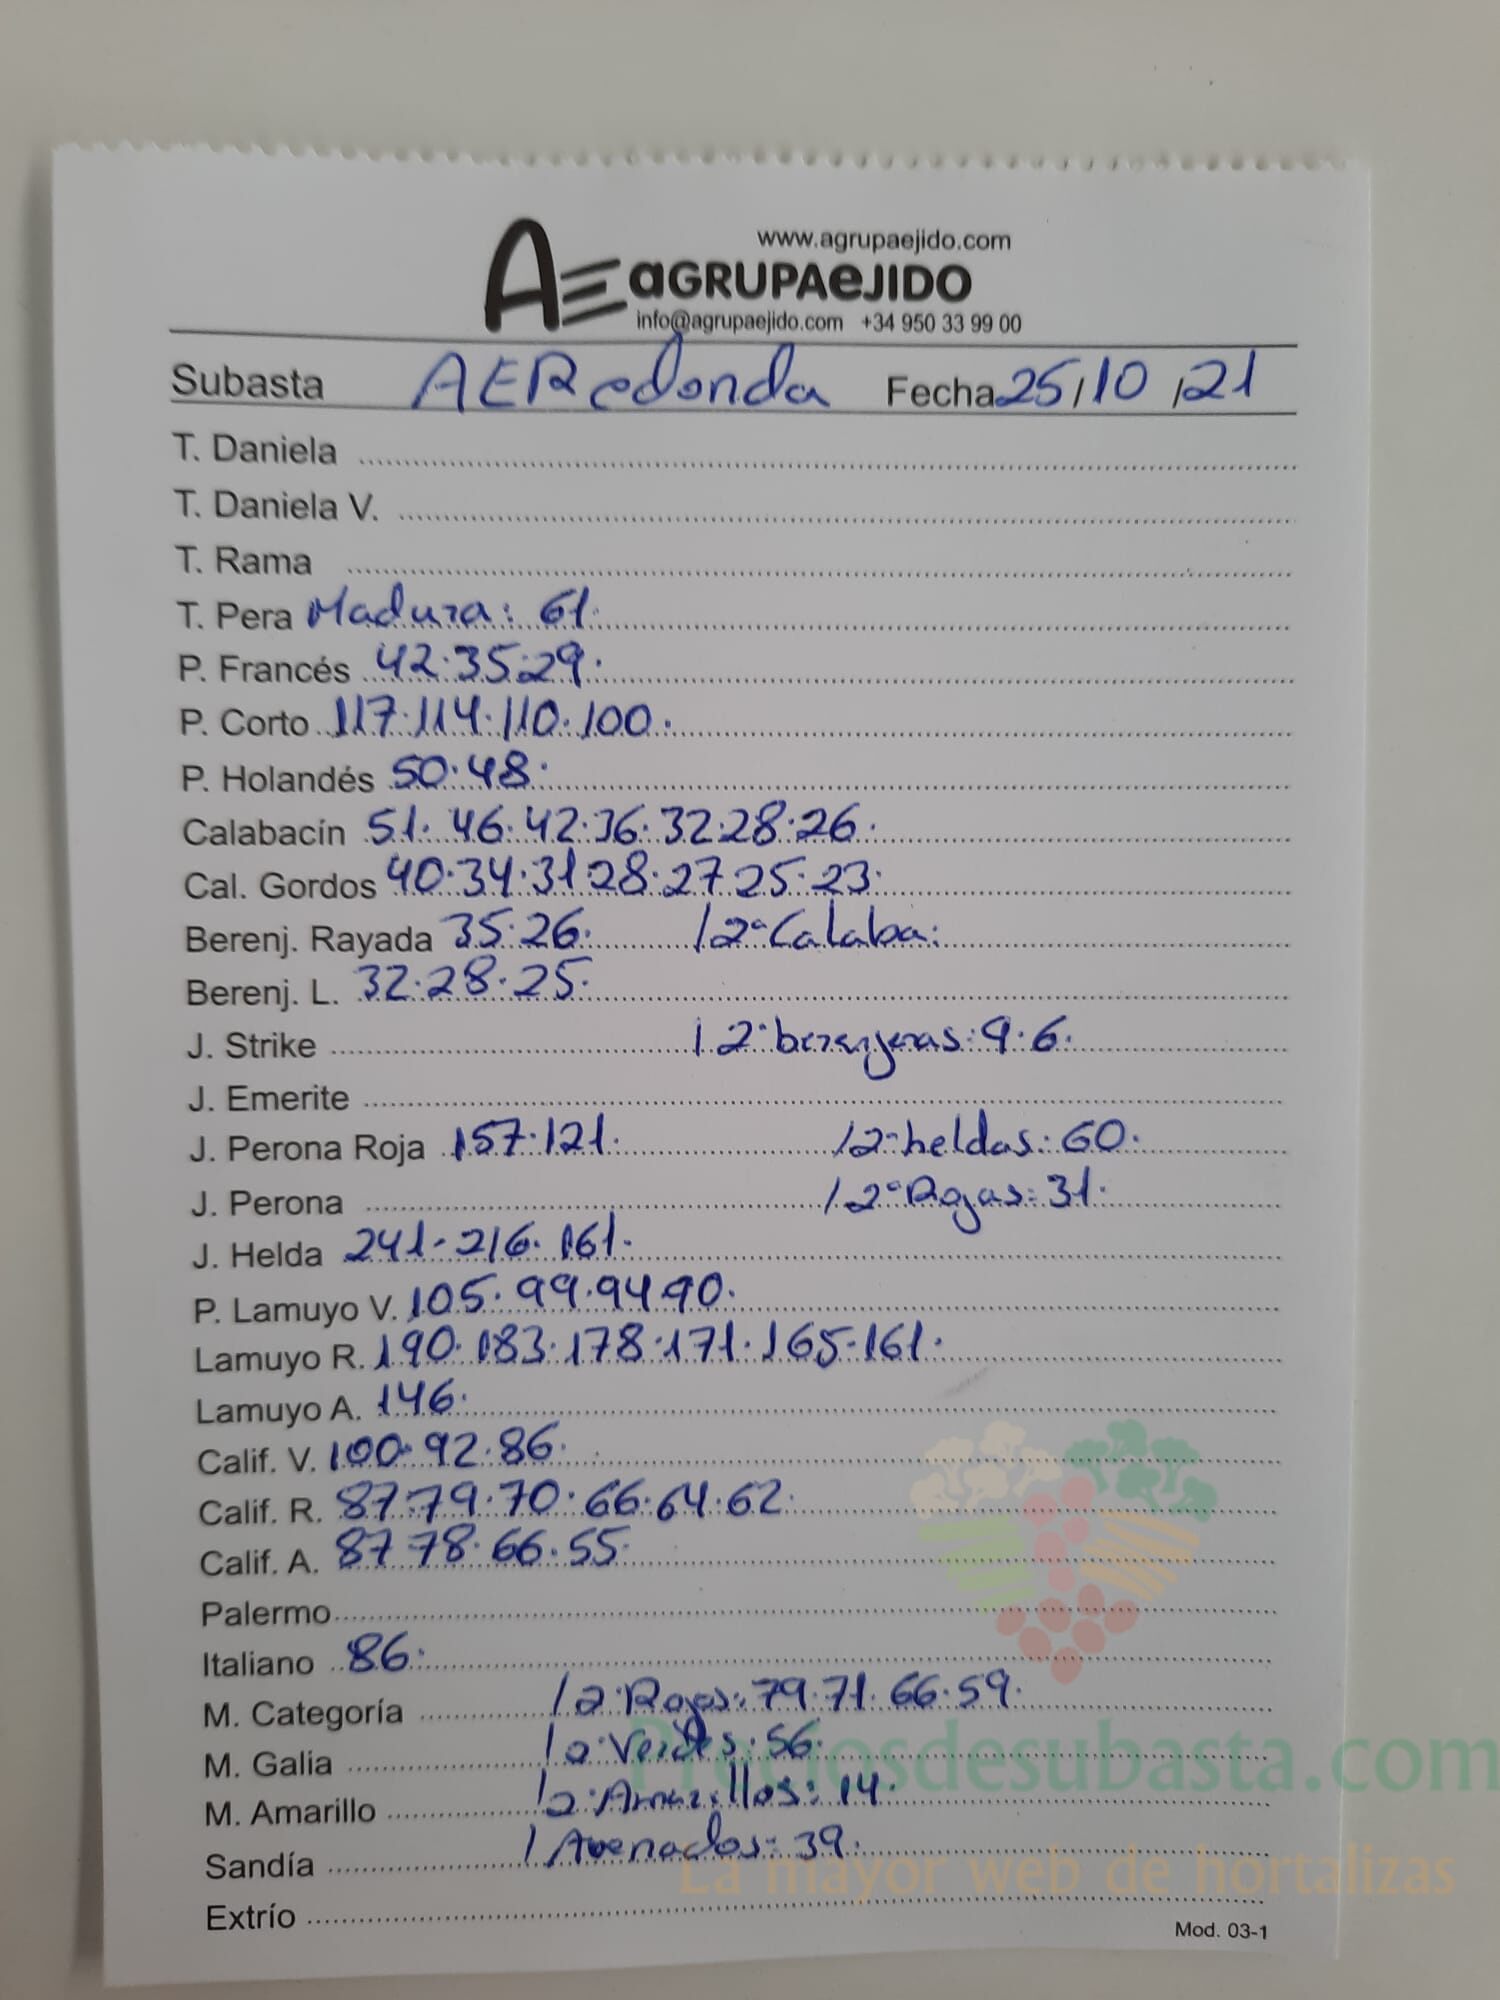 www.agrupaejido.com
AE aGRUPAeJIDO
info@agrupaejido.com +34 950 33 99 00
Subasta AERedonda Fecha 25/10/21
T. Daniela
T. Daniela V.
T. Rama
T. Pera Madura: 61.
P. Francés 42.35.29.
P. Corto 117.114.110.100.
P. Holandés 50.48.
Calabacín 51.46.42.36.32.28.26.
Cal. Gordos 40.34.31.28.27.25.23.
Berenj. Rayada 35.26. / 2ª Calaba:
Berenj. L. 32.28.25.
J. Strike / 2ª berenjenas: 9.6.
J. Emerite
J. Perona Roja 157.121. / 2ª heldas: 60.
J. Perona / 2ª Rojas: 31.
J. Helda 241.216.161.
P. Lamuyo V. 105.99.94.90.
Lamuyo R. 190.183.178.171.165.161.
Lamuyo A. 146.
Calif. V. 100.92.86.
Calif. R. 87.79.70.66.64.62.
Calif. A. 87.78.66.55.
Palermo
Italiano 86.
M. Categoría / 2ª Rojos: 79.71.66.59.
M. Galia / 2ª Verdes: 56.
Preciosdesubasta.com
M. Amarillo / 2ª Amarillos: 14.
Sandía / Asenados: 39.
La mayor web de hortalizas
Extrío
Mod. 03-1